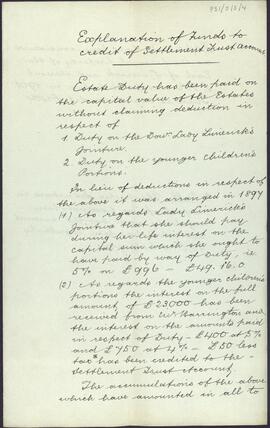 P51/2/3/4
Explanation of Funds to
credit of Settlement Trust Account
Estate Duty has been paid on
the capital value of the Estates
without claiming deduction in
respect of
1 Duty on the Dowr Lady Limerick's
Jointure.
2 Duty on the younger Children's
Portions.
In lieu of deductions in respect of
the above it was arranged in 1897
(1) As regards Lady Limerick's
Jointure that she should pay
during her life interest on the
capital sum which she ought to
have paid by way of Duty, ie
5% on £996 – £49.16.0.
(2) As regards the younger children's
portions the interest on the full
amount of £23000 has been
received from Barrington and
the interest on the amounts paid
in respect of Duty – £400 at 5%
and £750 at 4% – £50 less
tax has been credited to the
Settlement Trust Account.
The accumulations of the above
which have amounted in all to